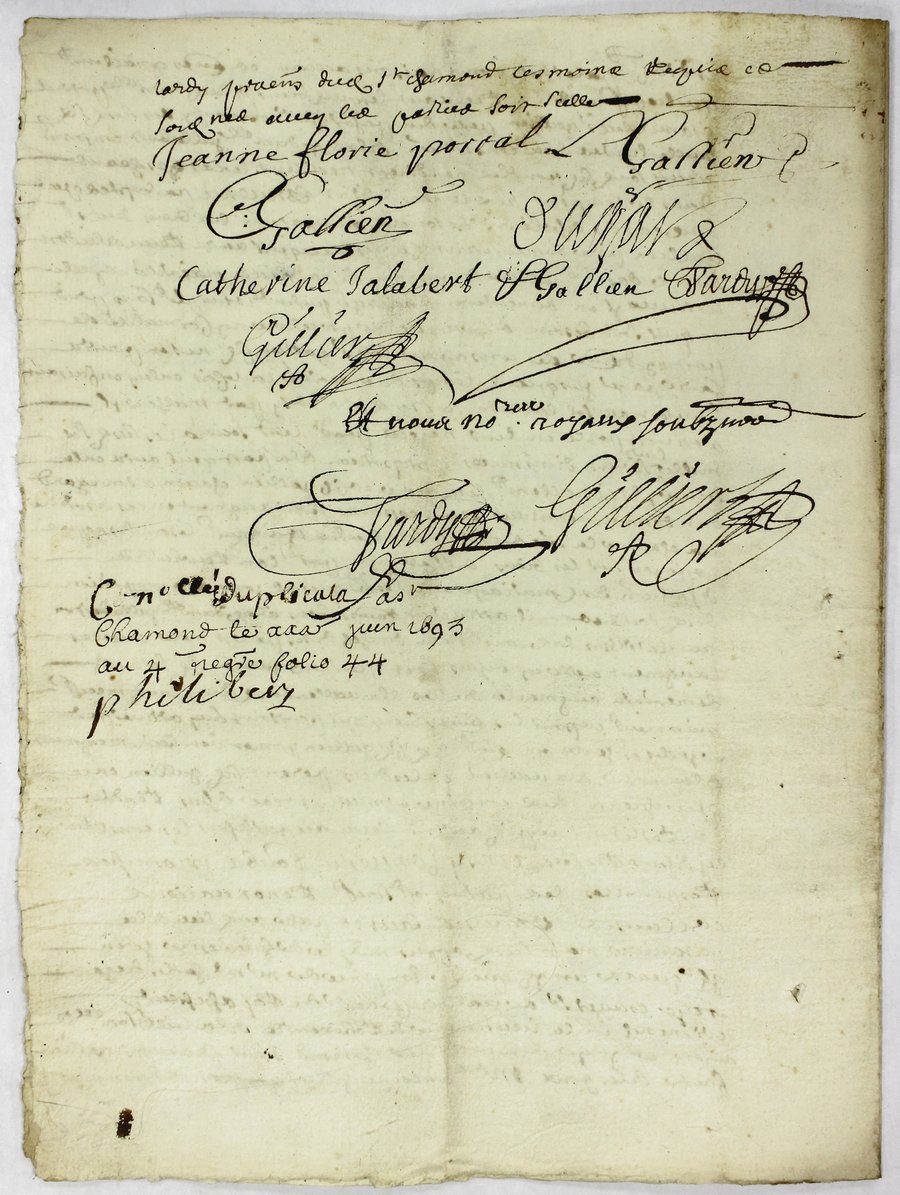 tardy praens dud st chamond tesmoins requis et
soubsignes avec les parties soit scelle
Jeanne florie porral Gallien
C. Gallien Dugas
Catherine Jalabert Gallien Tardy
Gillier
Et nous no.res royaux soubznes
Tardy Gillier
duplicata a st
Chamond le xxx juin 1693
au 4 regre folio 44
philibert